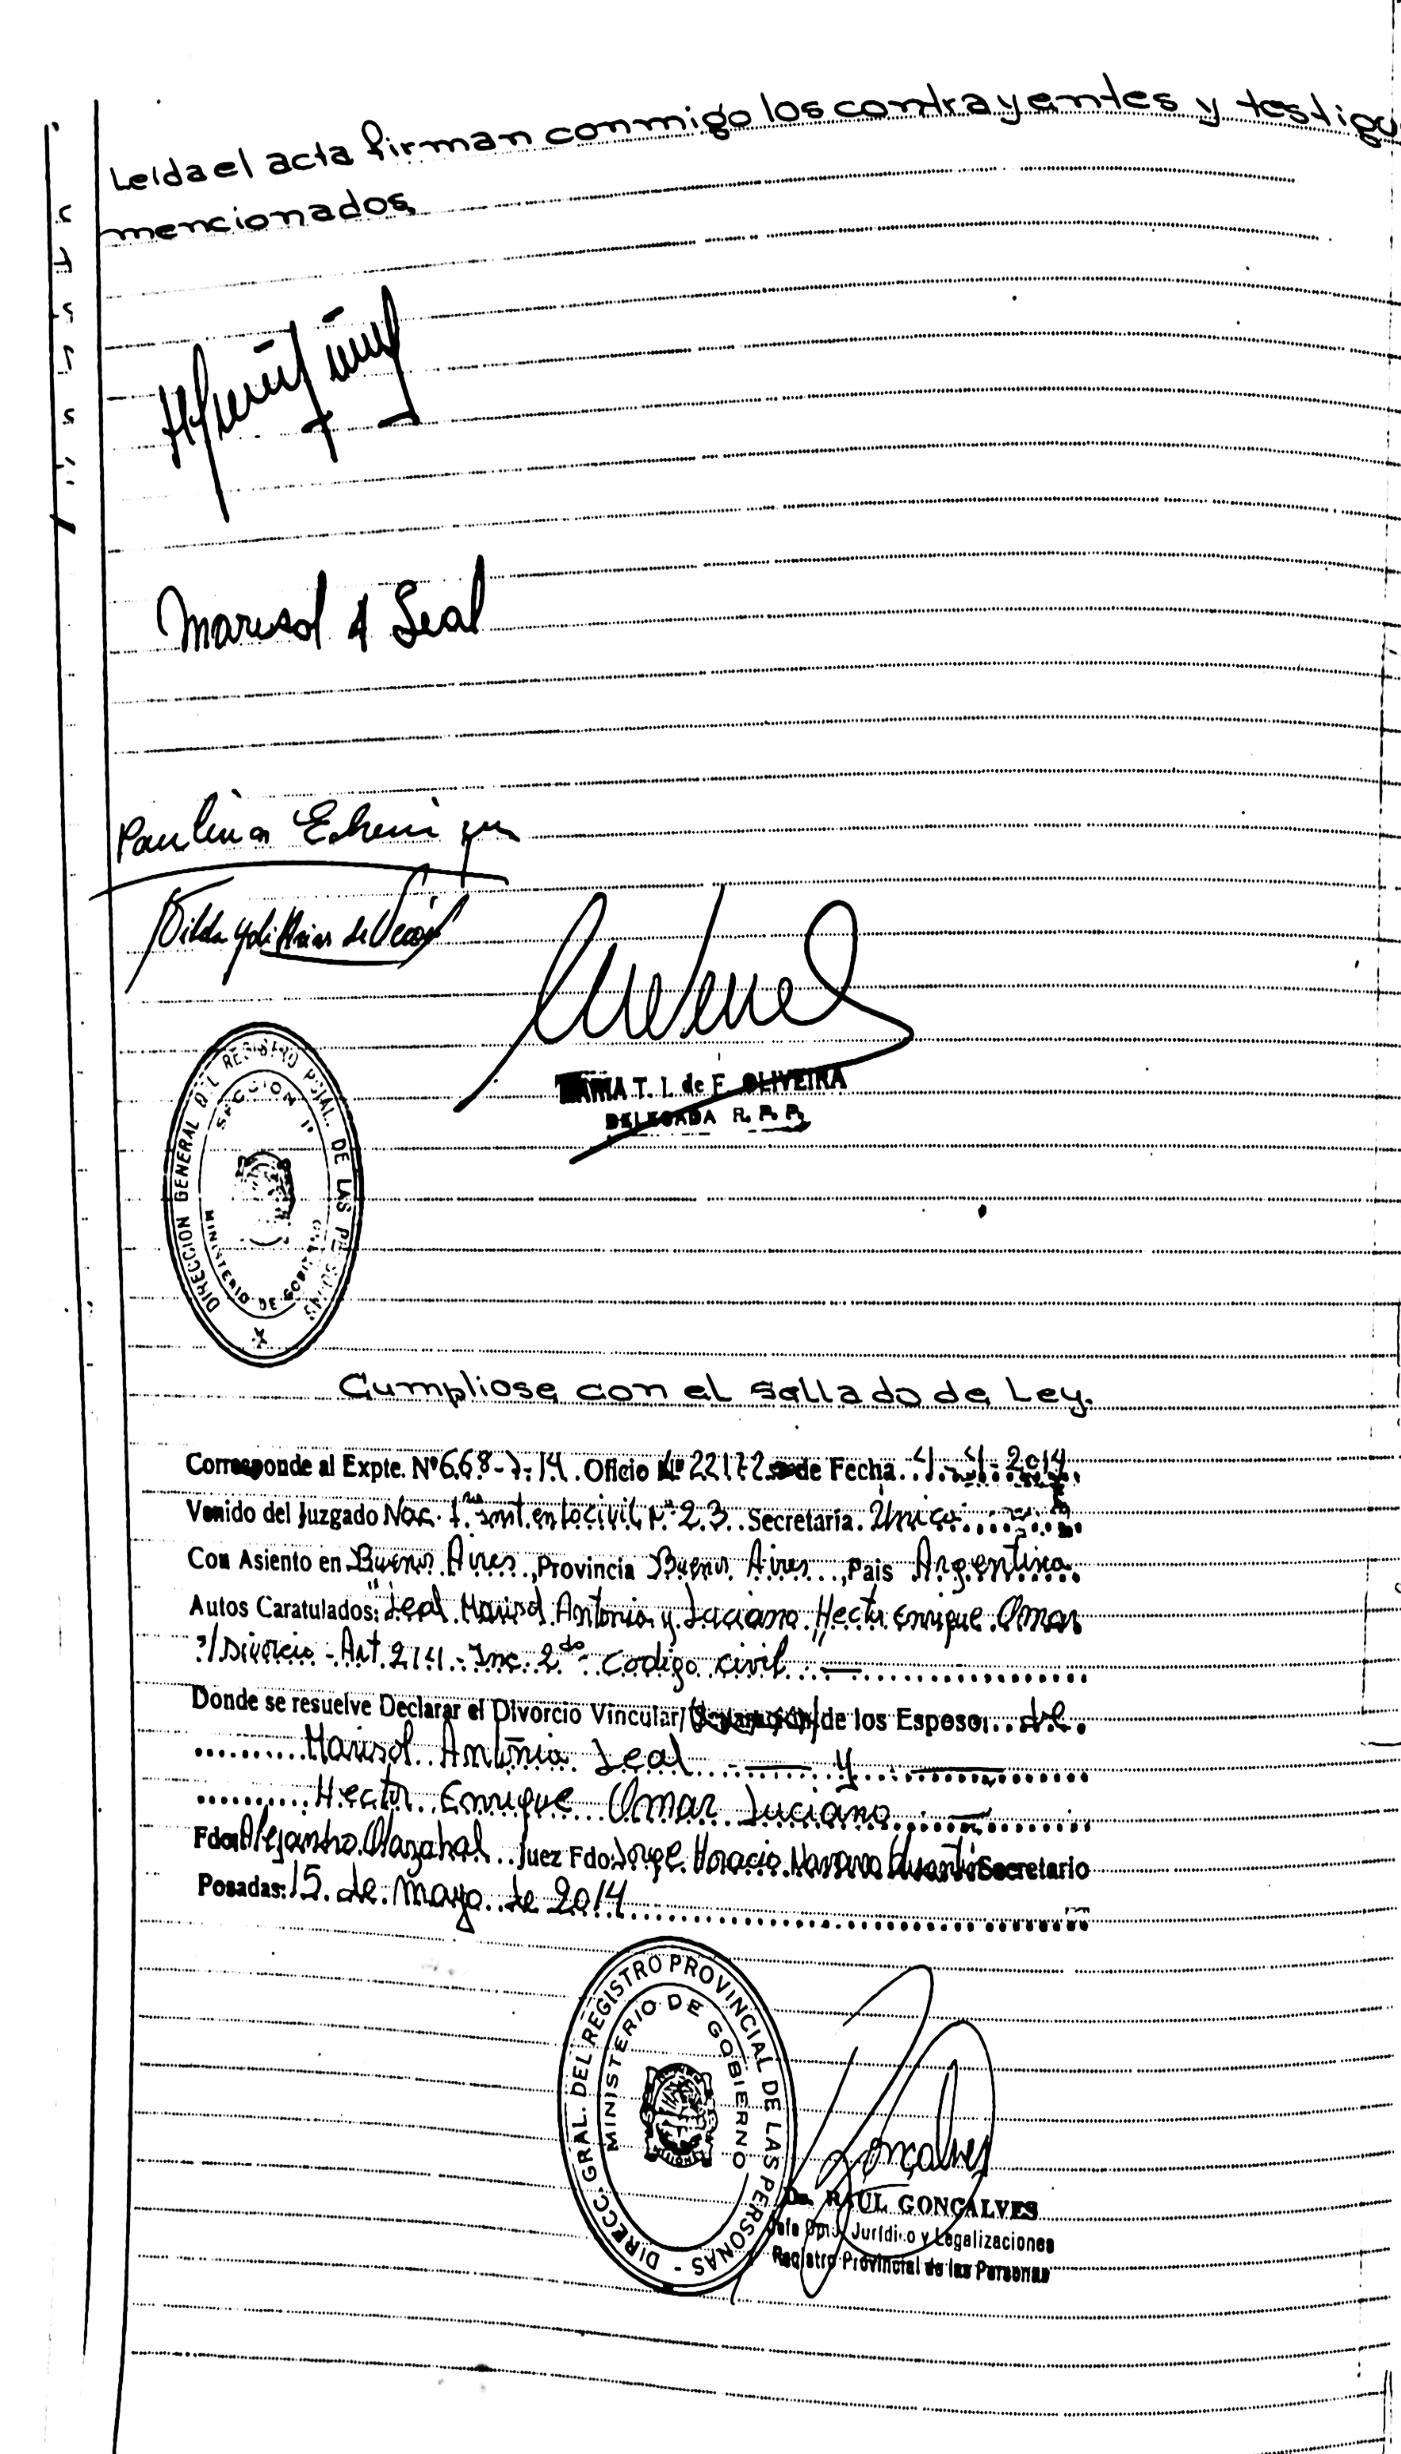 Leída el acta firman conmigo los contrayentes y testigo
mencionados
Marisol A Leal
Paulina Echenique
Hilda Arias de
DIRECCION GENERAL DEL REGISTRO PCIAL. DE LAS PERSONAS
SECCION 1º
MINISTERIO DE GOBIERNO
MARIA T. I. de F. OLIVEIRA
DELEGADA R. P. P.
Cumpliose con el sellado de Ley.
Corresponde al Expte. Nº 668-7-14. Oficio Nº 22172 de Fecha 4-4-2014
Venido del Juzgado Nac. 1ra Inst. en lo civil Nº 23 Secretaría Unica
Con Asiento en Buenos Aires, Provincia Buenos Aires, País Argentina
Autos Caratulados: "Leal Marisol Antonia y Luciano Hector Enrique Omar
s/Divorcio - Art. 214 - Inc. 2do - Codigo civil"
Donde se resuelve Declarar el Divorcio Vincular/ de los Esposos de
Marisol Antonia Leal y
Hector Enrique Omar Luciano
Fdo: Alejandro Olazabal Juez Fdo: Jorge Horacio Secretario
Posadas: 15 de mayo de 2014
DIRECC. GRAL. DEL REGISTRO PROVINCIAL DE LAS PERSONAS -
MINISTERIO DE GOBIERNO
Gonçalves
Dr. RAUL GONÇALVES
Jefe Dpto. Jurídico y Legalizaciones
Registro Provincial de las Personas